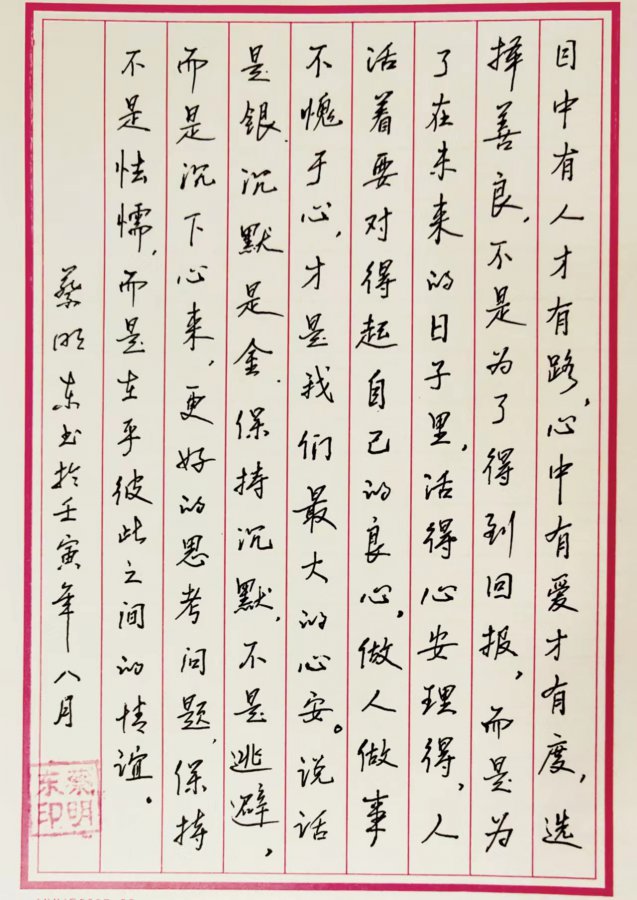 目中有人才有路,心中有爱才有度,选
择善良,不是为了得到回报,而是为
了在未来的日子里,活得心安理得,人
活着要对得起自己的良心,做人做事
不愧于心,才是我们最大的心安。说话
是银.沉默是金.保持沉默,不是逃避,
而是沉下心来,更好的思考问题,保持
不是怯懦,而是在乎彼此之间的情谊。
蔡明东书於壬寅年八月
蔡明
东印